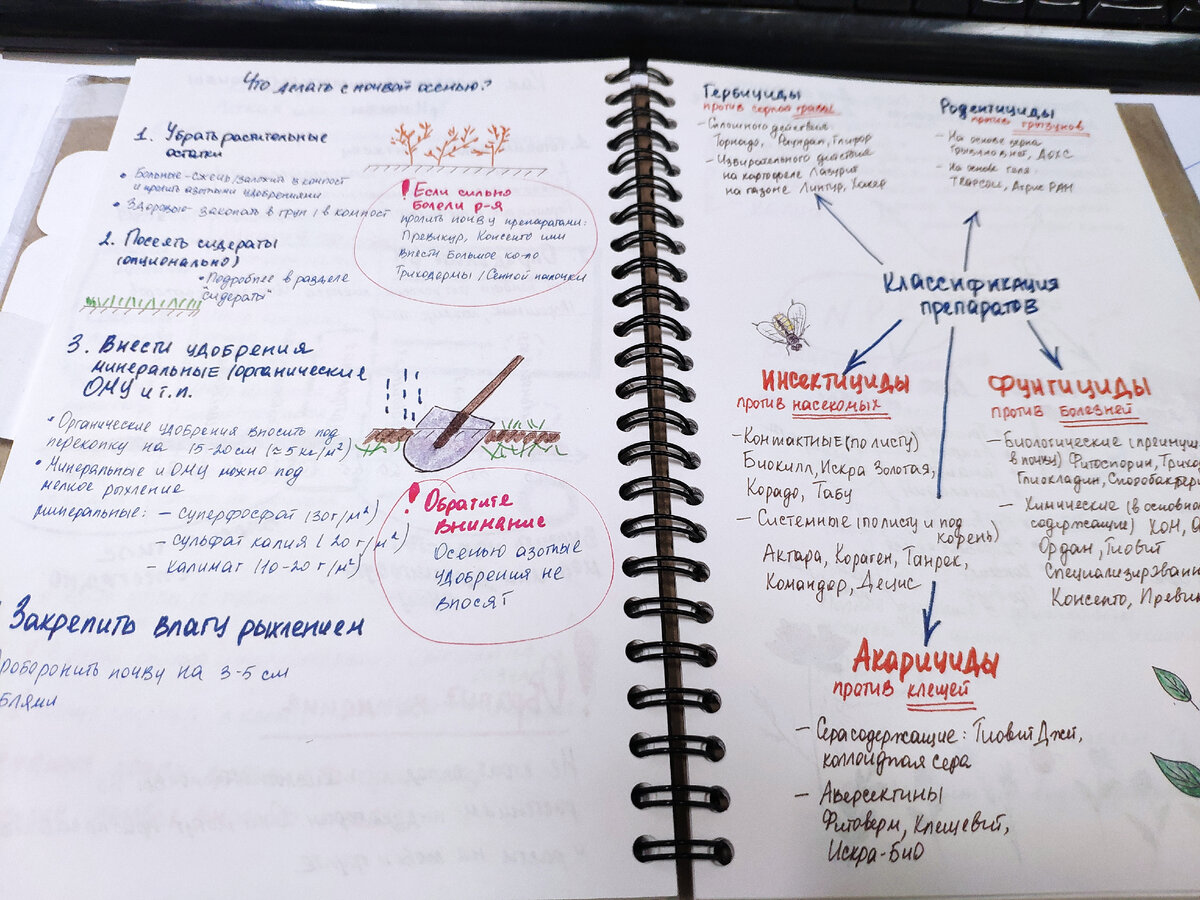 Что делать с почвой осенью?
1. Убрать растительные
остатки
• Больные - сжечь/заложить в компост
и пролить азотными удобрениями
• Здоровые - закопать в груп / в компост
! Если сильно
болели р-я
пролить почву препаратами:
Превикур, Консенто или
внести большое ко-во
Триходермы / Сенной палочки
2. Посеять сидераты
(опционально)
• Подробнее в разделе
"сидераты"
3. Внести удобрения
минеральные /органические
ОМУ и т.п.
• Органические удобрения вносить под
перекопку на 15-20 см (≈5 кг/м²)
• Минеральные и ОМУ можно под
мелкое рыхление
минеральные: - суперфосфат (30 г/м²)
- сульфат калия (20 г/м²)
- калимаг (10-20 г/м²)
! Обратите
внимание
Осенью азотные
удобрения не
вносят
Закрепить влагу рыхлением
роборонить почву на 3-5 см
блями
Гербициды
против сорной травы
- Сплошного действия:
Торнадо, Раундап, Глифор
- Избирательного действия
на картофеле Лазурит
на газоне Линтур, Хакер
Родентициды
против грызунов
- На основе зерна
- На основе геля:
Классификация
препаратов
Инсектициды
против насекомых
- Контактные (по листу)
Биокилл, Искра Золотая,
Корадо, Табу
- Системные (по листу и под
корень)
Актара, Кораген, Танрек,
Командор, Децис
Фунгициды
против болезней
- Биологические (преимущ
в почву) Фитоспорин, Трихо
Глиокладин, Споробактери
- Химические (в основно
содержащие) ХОМ,
Ордан, Тиовит
Специализирован
Консенто, Превик
Акарициды
против клещей
- Серасодержащие: Тиовит Джет,
коллоидная сера
- Аверсектины
Фитоверм, Клещевит,
Искра-Био